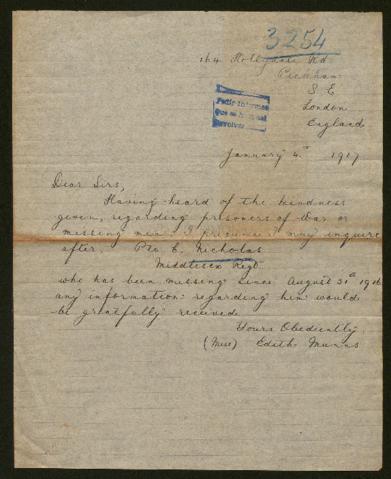 3254
164 Hollydale Rd
Peckham
S. E
London
England
Pedir Informes
January 4th 1917
Dear Sirs,
Having heard of the kindness
given, regarding prisoners of War or
missing men I presume I may inquire
after. Pte. C. Nicholas
Middlesex Regt.
who has been missing since August 31st 1916
any information regarding him would
be gratefully received
Yours Obediently
(Miss) Edith Munns